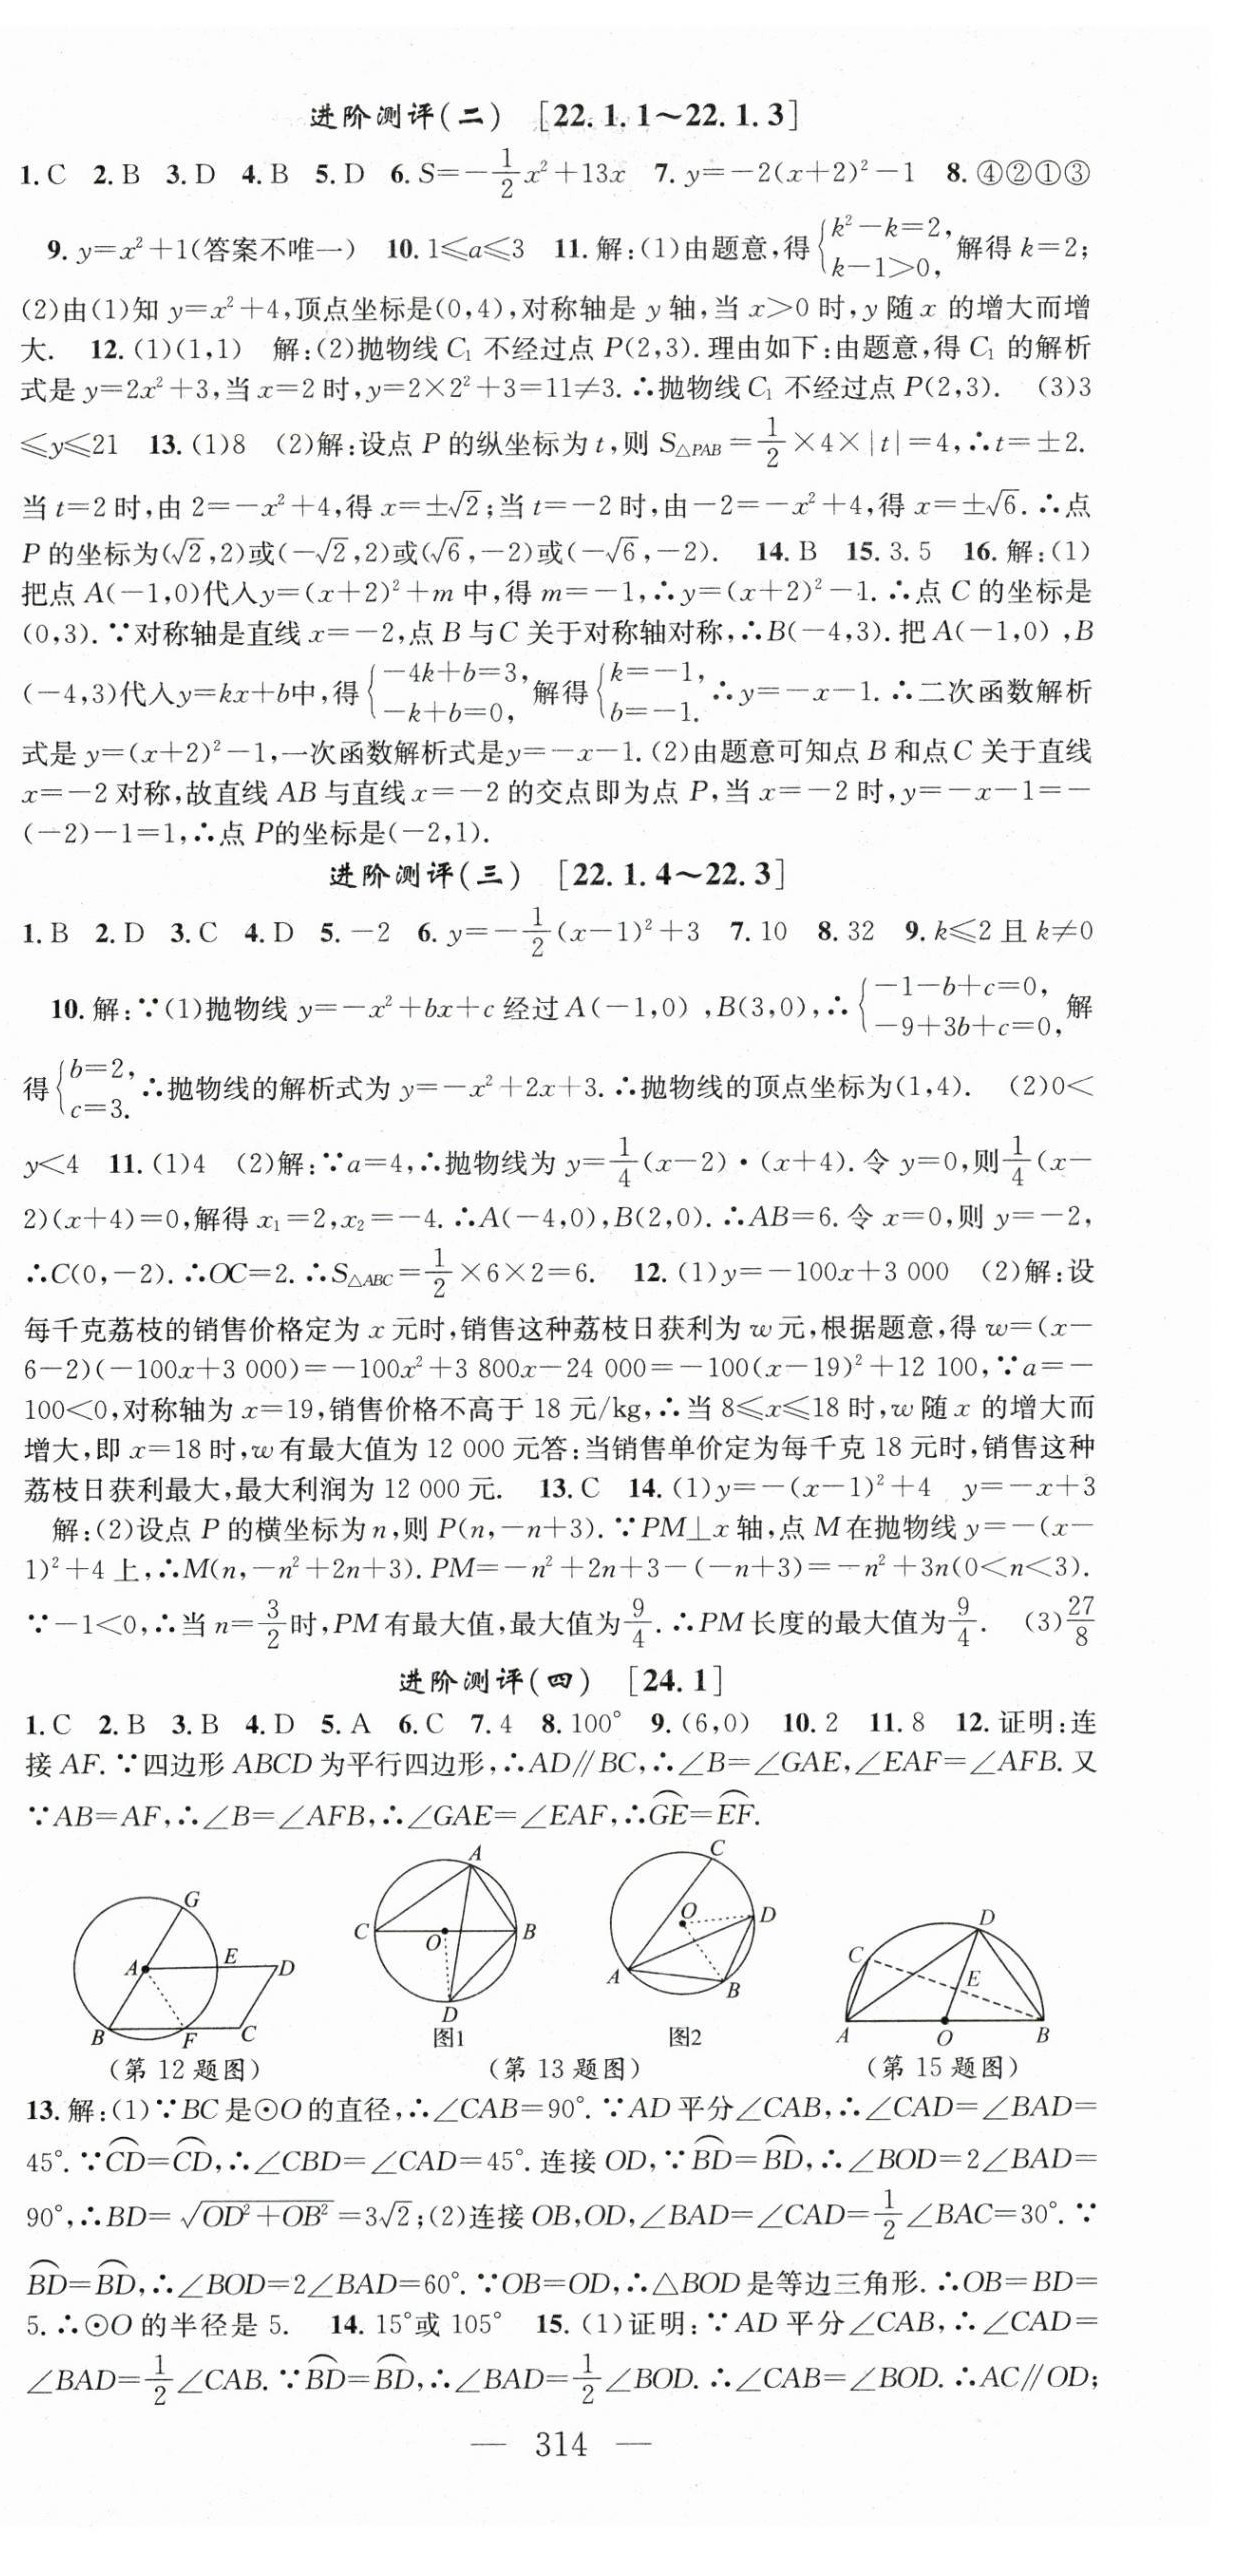 进阶测评(二) [22.1.1～22.1.3]
1.C 2.B 3.D 4.B 5.D 6.S=-\frac{1}{2}x²+13x 7.y=-2(x+2)²-1 8.④②①③
9.y=x²+1(答案不唯一) 10.1≤a≤3 11.解:(1)由题意,得{k²-k=2, k-1>0, 解得 k=2;
(2)由(1)知 y=x²+4,顶点坐标是(0,4),对称轴是 y 轴,当 x>0 时,y 随 x 的增大而增
大. 12.(1)(1,1) 解:(2)抛物线 C₁ 不经过点 P(2,3).理由如下:由题意,得 C₁ 的解析
式是 y=2x²+3,当 x=2 时,y=2×2²+3=11≠3.∴抛物线 C₁ 不经过点 P(2,3). (3)3
≤y≤21 13.(1)8 (2)解:设点 P 的纵坐标为 t,则 S△PAB=\frac{1}{2}×4×|t|=4,∴t=±2.
当 t=2 时,由 2=-x²+4,得 x=±√2;当 t=-2 时,由-2=-x²+4,得 x=±√6.∴点
P 的坐标为(√2,2)或(-√2,2)或(√6,-2)或(-√6,-2). 14.B 15.3.5 16.解:(1)
把点 A(-1,0)代入y=(x+2)²+m 中,得 m=-1,∴y=(x+2)²-1.∴点 C 的坐标是
(0,3).∵对称轴是直线 x=-2,点 B 与 C 关于对称轴对称,∴B(-4,3).把 A(-1,0),B
(-4,3)代入y=kx+b中,得{-4k+b=3, -k+b=0, 解得{k=-1, b=-1. ∴y=-x-1.∴二次函数解析
式是 y=(x+2)²-1,一次函数解析式是y=-x-1.(2)由题意可知点 B 和点 C 关于直线
x=-2 对称,故直线 AB 与直线 x=-2 的交点即为点 P,当 x=-2 时,y=-x-1=-
(-2)-1=1,∴点 P的坐标是(-2,1).
进阶测评(三) [22.1.4～22.3]
1.B 2.D 3.C 4.D 5.-2 6.y=-\frac{1}{2}(x-1)²+3 7.10 8.32 9.k≤2 且 k≠0
10.解:∵(1)抛物线 y=-x²+bx+c 经过 A(-1,0),B(3,0),∴{-1-b+c=0, -9+3b+c=0, 解
得{b=2, c=3. ∴抛物线的解析式为 y=-x²+2x+3.∴抛物线的顶点坐标为(1,4). (2)0<
y<4 11.(1)4 (2)解:∵a=4,∴抛物线为 y=\frac{1}{4}(x-2)·(x+4).令 y=0,则\frac{1}{4}(x-
2)(x+4)=0,解得 x₁=2,x₂=-4.∴A(-4,0),B(2,0).∴AB=6.令 x=0,则 y=-2,
∴C(0,-2).∴OC=2.∴S△ABC=\frac{1}{2}×6×2=6. 12.(1)y=-100x+3 000 (2)解:设
每千克荔枝的销售价格定为 x 元时,销售这种荔枝日获利为 w 元,根据题意,得 w=(x-
6-2)(-100x+3 000)=-100x²+3 800x-24 000=-100(x-19)²+12 100,∵a=-
100<0,对称轴为 x=19,销售价格不高于 18 元/kg,∴当 8≤x≤18 时,w 随 x 的增大而
增大,即 x=18 时,w 有最大值为 12 000 元答:当销售单价定为每千克 18 元时,销售这种
荔枝日获利最大,最大利润为 12 000 元. 13.C 14.(1)y=-(x-1)²+4 y=-x+3
解:(2)设点 P 的横坐标为 n,则 P(n,-n+3).∵PM⊥x 轴,点 M 在抛物线 y=-(x-
1)²+4 上,∴M(n,-n²+2n+3).PM=-n²+2n+3-(-n+3)=-n²+3n(0<n<3).
∵-1<0,∴当 n=\frac{3}{2}时,PM 有最大值,最大值为\frac{9}{4}.∴PM 长度的最大值为\frac{9}{4}. (3)\frac{27}{8}
进阶测评(四) [24.1]
1.C 2.B 3.B 4.D 5.A 6.C 7.4 8.100° 9.(6,0) 10.2 11.8 12.证明:连
接 AF.∵四边形 ABCD 为平行四边形,∴AD∥BC,∴∠B=∠GAE,∠EAF=∠AFB.又
∵AB=AF,∴∠B=∠AFB,∴∠GAE=∠EAF,∴\overset{\frown}{GE}=\overset{\frown}{EF}.
G A E D B F C
(第 12 题图)
A C O B D
图1
C O D A B
图2
(第 13 题图)
D C E A O B
(第 15 题图)
13.解:(1)∵BC 是⊙O 的直径,∴∠CAB=90°.∵AD 平分∠CAB,∴∠CAD=∠BAD=
45°.∵\overset{\frown}{CD}=\overset{\frown}{CD},∴∠CBD=∠CAD=45°.连接 OD,∵\overset{\frown}{BD}=\overset{\frown}{BD},∴∠BOD=2∠BAD=
90°,∴BD=√(OD²+OB²)=3√2;(2)连接 OB,OD,∠BAD=∠CAD=\frac{1}{2}∠BAC=30°.∵
\overset{\frown}{BD}=\overset{\frown}{BD},∴∠BOD=2∠BAD=60°.∵OB=OD,∴△BOD 是等边三角形.∴OB=BD=
5.∴⊙O 的半径是 5. 14.15°或 105° 15.(1)证明:∵AD 平分∠CAB,∴∠CAD=
∠BAD=\frac{1}{2}∠CAB.∵\overset{\frown}{BD}=\overset{\frown}{BD},∴∠BAD=\frac{1}{2}∠BOD.∴∠CAB=∠BOD.∴AC∥OD;
— 314 —